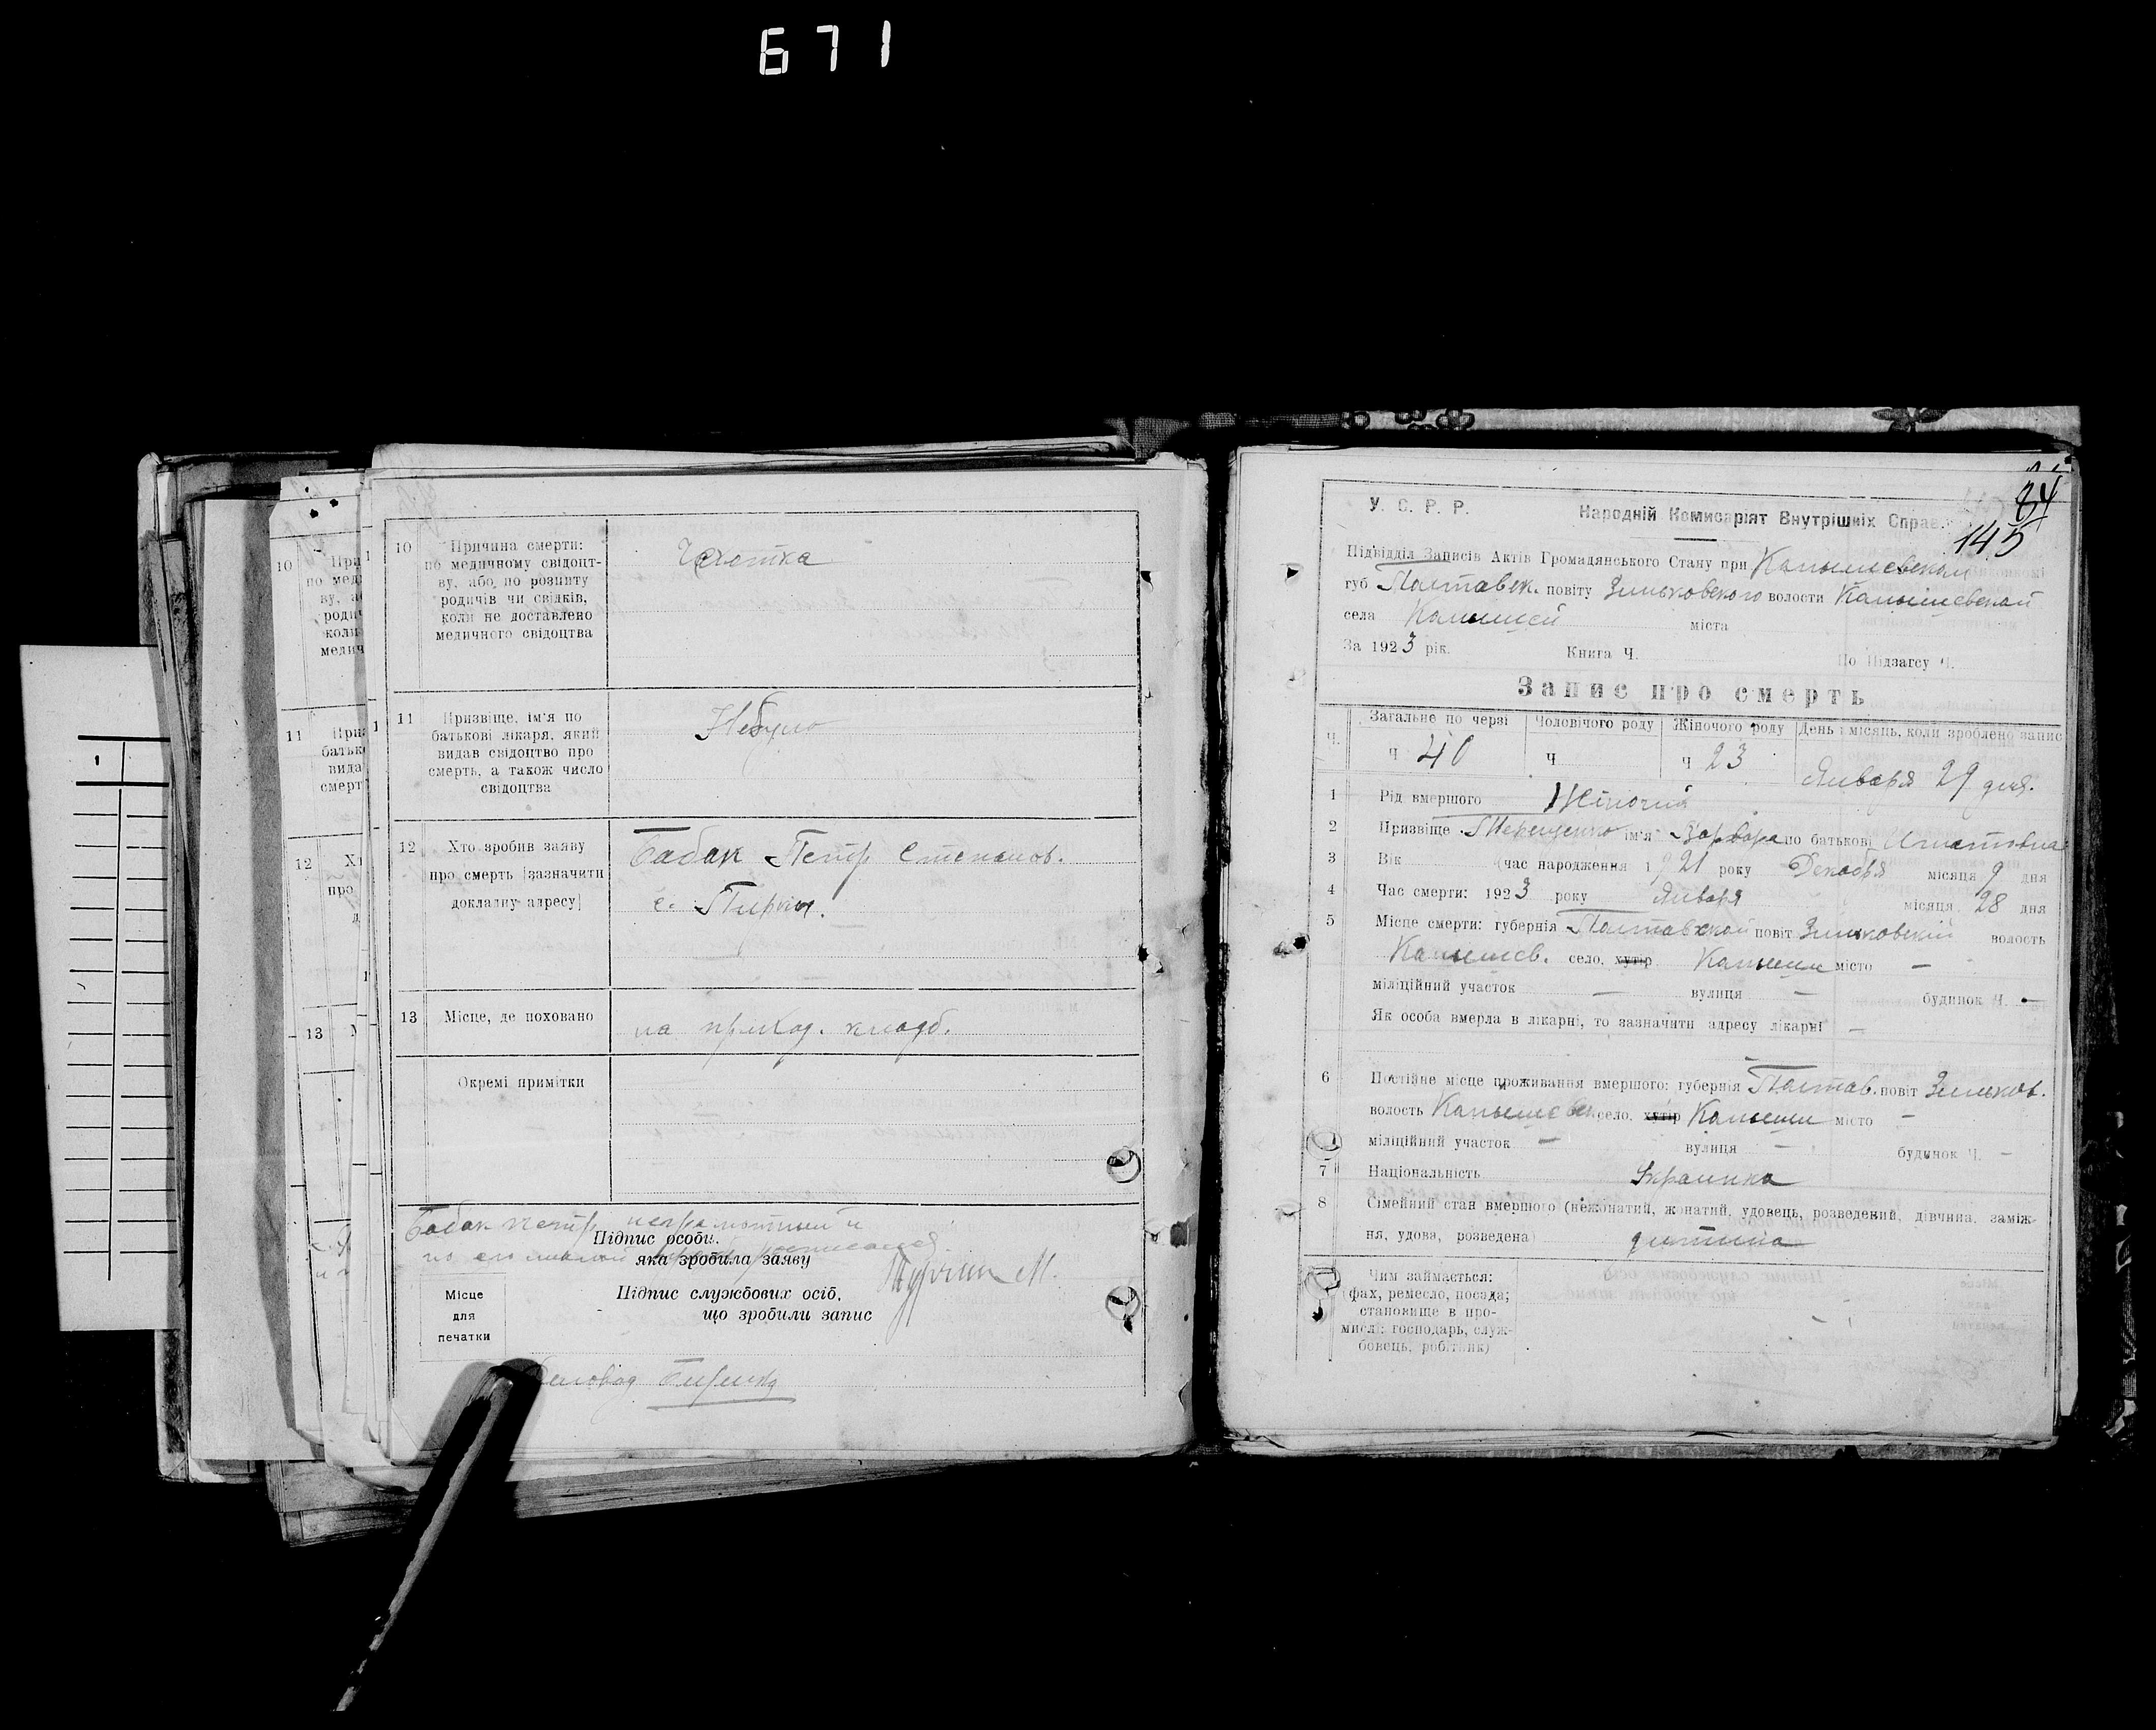 671
10
Причина смерти:
по медичному свідоцт-
ву, або, по розпиту
родичів чи свідків,
коли не доставлено
медичного свідоцтва
Чахотка
11
Призвіще, ім'я по
батькові лікаря, який
видав свідоцтво про
смерть, а також число
свідоцтва
Небуло
12
Хто зробив заяву
про смерть (зазначити
докладну адресу)
Бабак Петр Степанов.
с. Пирки.
13
Місце, де поховано
на приход. кладб.
Окремі примітки
Бабак Петр неграмотный и
по его личной расписался
Підпис особи,
яка зробила заяву
Підпис службових осіб,
що зробили запис
Місце
для
печатки
Деловод
84
145
У. С. Р. Р.
Народній Комисаріят Внутрішніх Справ.
Підвідділ Записів Актів Громадянського Стану при
губ Полтавск. повіту Зиньковского волости
села міста
За 1923 рік. Книга Ч. По Підзагсу Ч.
Запис про смерть
Ч. Загальне по черзі Чоловічого роду Жіночого роду День і місяць, коли зроблено запис
Ч 40 Ч Ч 23 Января 29 дня.
1 Рід вмершого Жіночий
2 Призвіще Терещенко ім'я Варвара по батькові Игнатовна
3 Вік (час народження 1921 року Декабря місяця 9 дня
4 Час смерти: 1923 року Января місяця 28 дня
5 Місце смерти: губернія Полтавской повіт Зиньковский волость
село, хутір місто —
міліційний участок — вулиця — будинок Ч. —
Як особа вмерла в лікарні, то зазначити адресу лікарні —
6 Постійне місце проживання вмершого: губернія Полтав. повіт Зиньков.
волость село, хутір місто —
міліційний участок — вулиця — будинок Ч. —
7 Національність Украинка
8 Сімейний стан вмершого (нежонатий, жонатий, удовець, розведений, дівчина, заміж-
ня, удова, розведена) дитина
Чим займається:
(фах, ремесло, посада;
становище в про-
мислі: господарь, служ-
бовець, робітник)